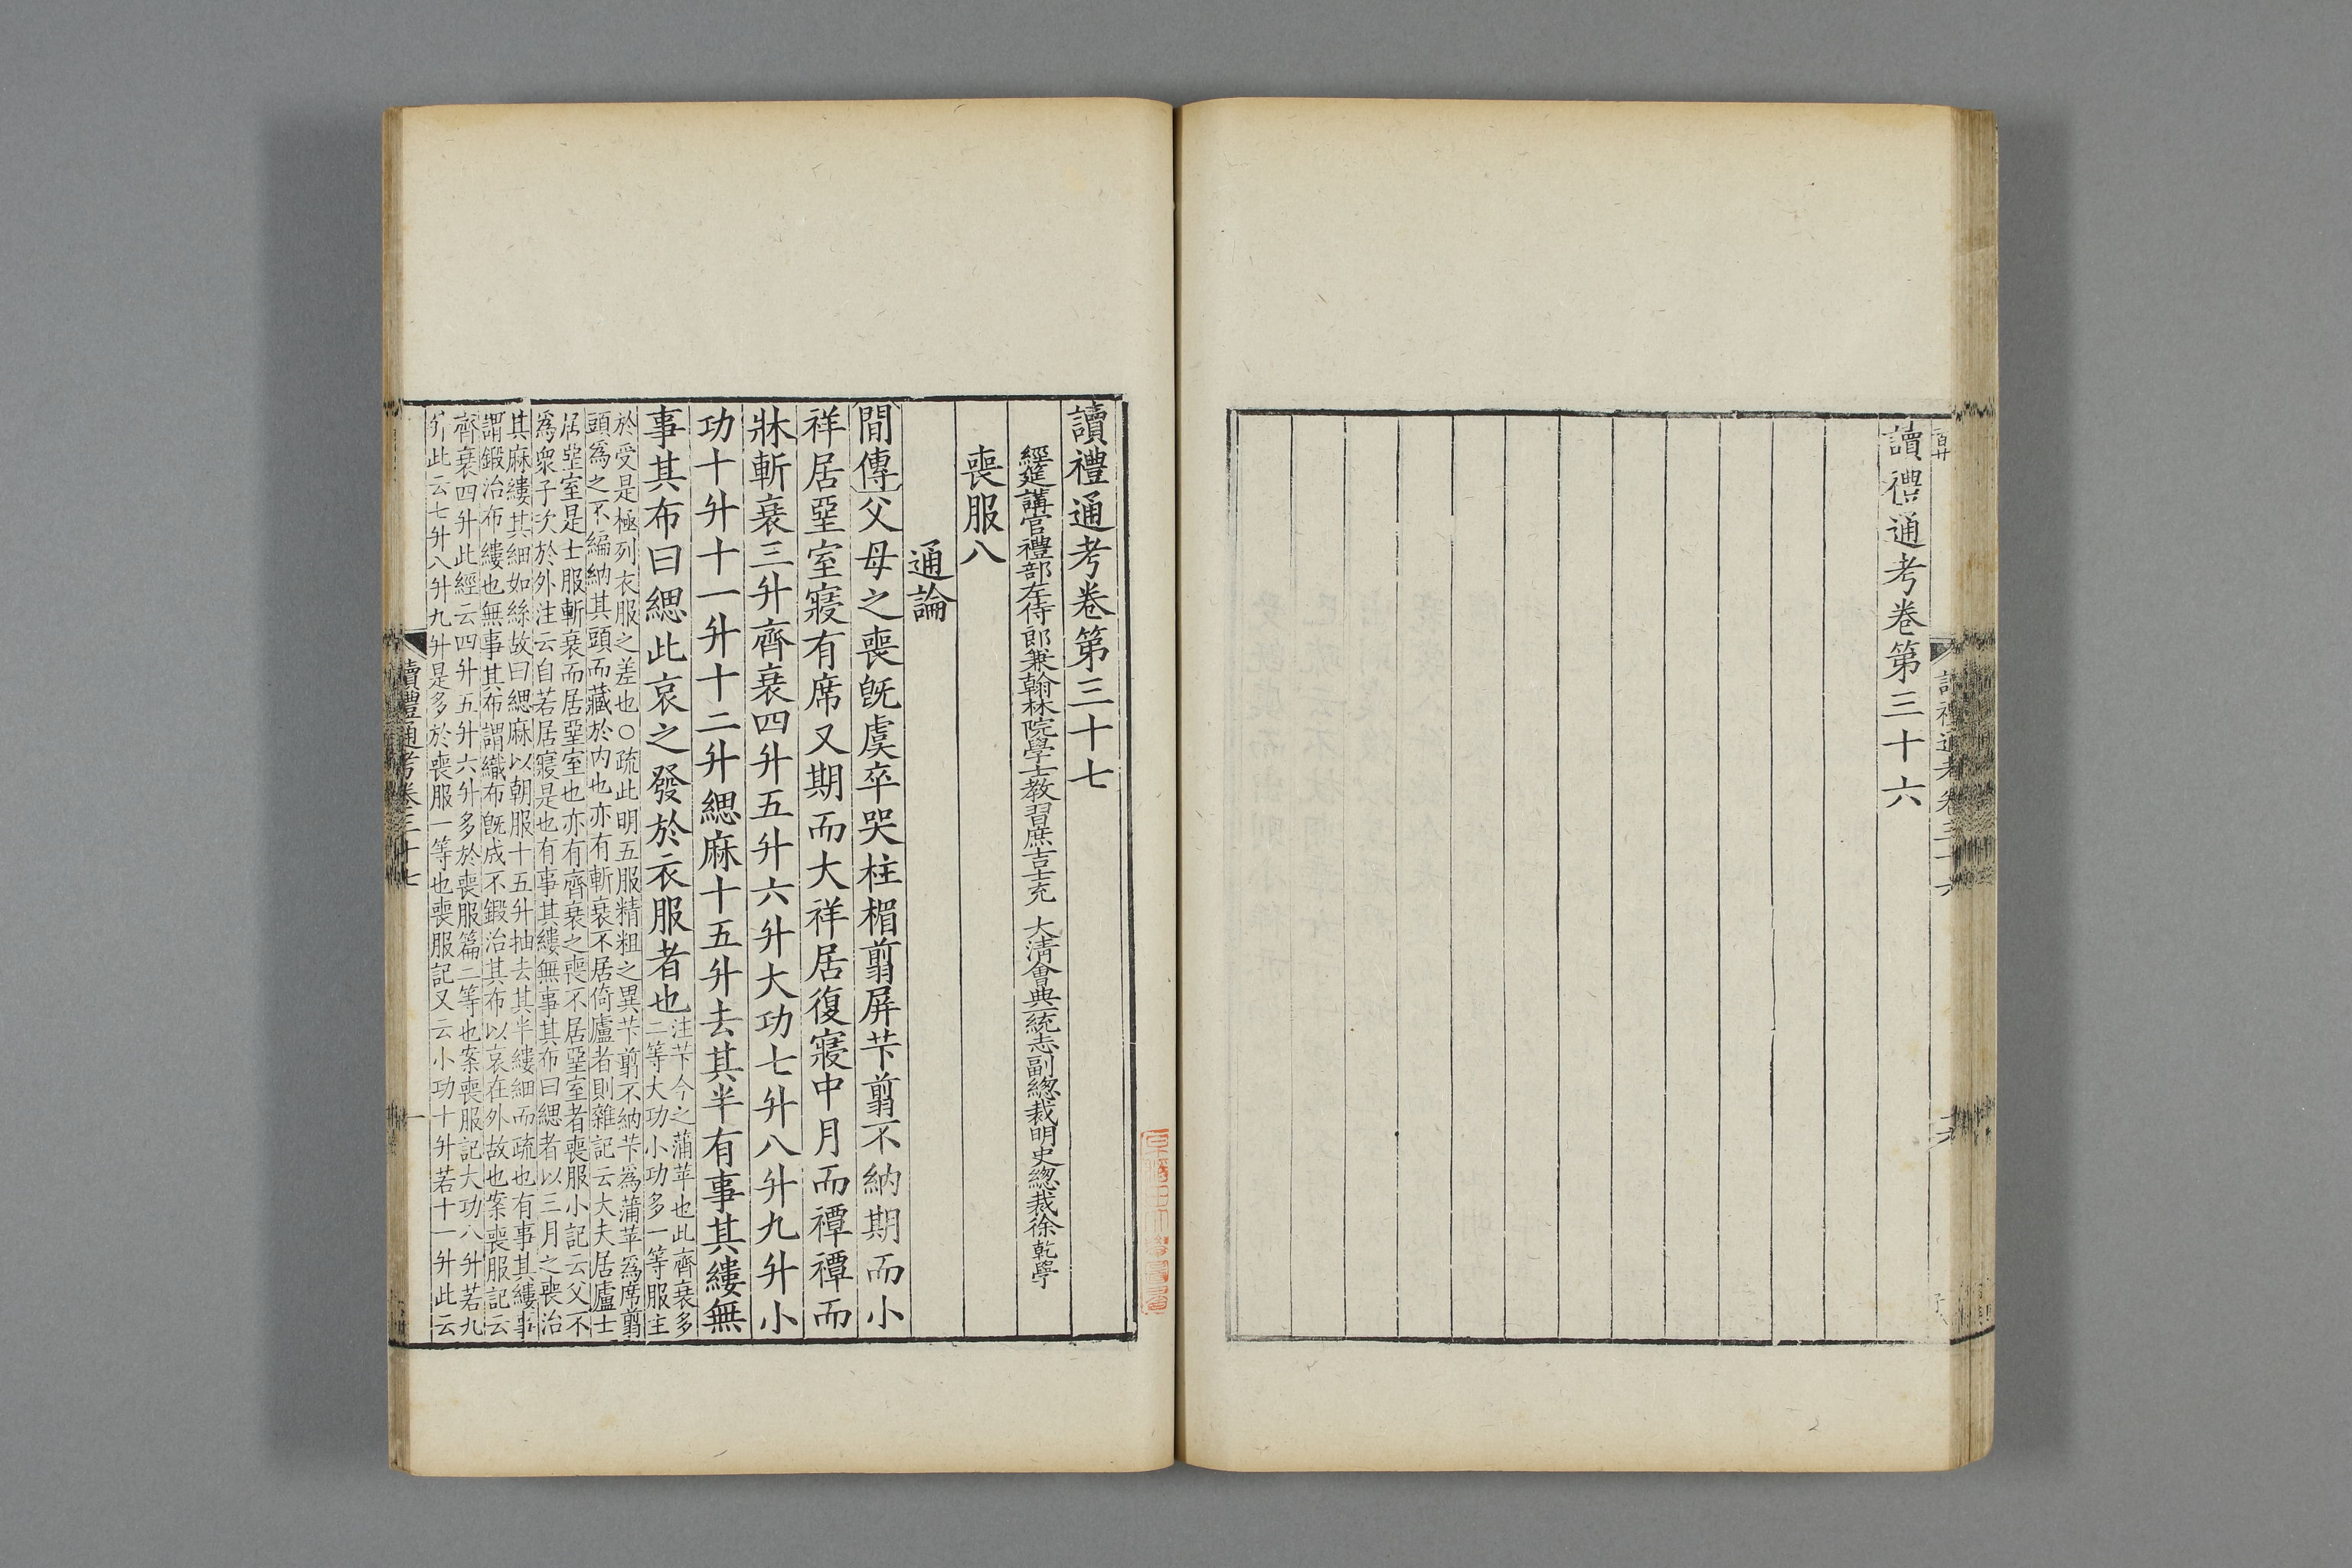 讀禮通考卷第三十六
讀禮通考卷第三十七
經筵講官禮部左侍郎兼翰林院學士教習庶吉士充 大清會典一統志副總裁明史總裁徐乾學
喪服八
通論
間傳父母之喪旣虞卒哭柱楣翦屏芐翦不納期而小
祥居堊室寢有席又期而大祥居復寢中月而禫禫而
牀斬衰三升齊衰四升五升六升大功七升八升九升小
功十升十一升十二升緦麻十五升去其半有事其縷無
事其布曰緦此哀之發於衣服者也
注芐今之蒲苹也此齊衰多
二等大功小功多一等服主
於受是極列衣服之差也○疏此明五服精粗之異芐翦不納芐爲蒲苹爲席翦
頭爲之不編納其頭而藏於内也亦有斬衰不居倚廬者則雜記云大夫居廬士
居堊室是士服斬衰而居堊室也亦有齊衰之喪不居堊室者喪服小記云父不
爲衆子次於外注云自若居寢是也有事其縷無事其布曰緦者以三月之喪治
其麻縷其細如絲故曰緦麻以朝服十五升抽去其半縷細而疏也有事其縷事
謂鍛治布縷也無事其布謂織布旣成不鍛治其布以哀在外故也案喪服記云
齊衰四升此經云四升五升六升多於喪服篇二等也案喪服記大功八升若九
升此云七升八升九升是多於喪服一等也喪服記又云小功十升若十一升此云
讀禮通考卷三十七
一